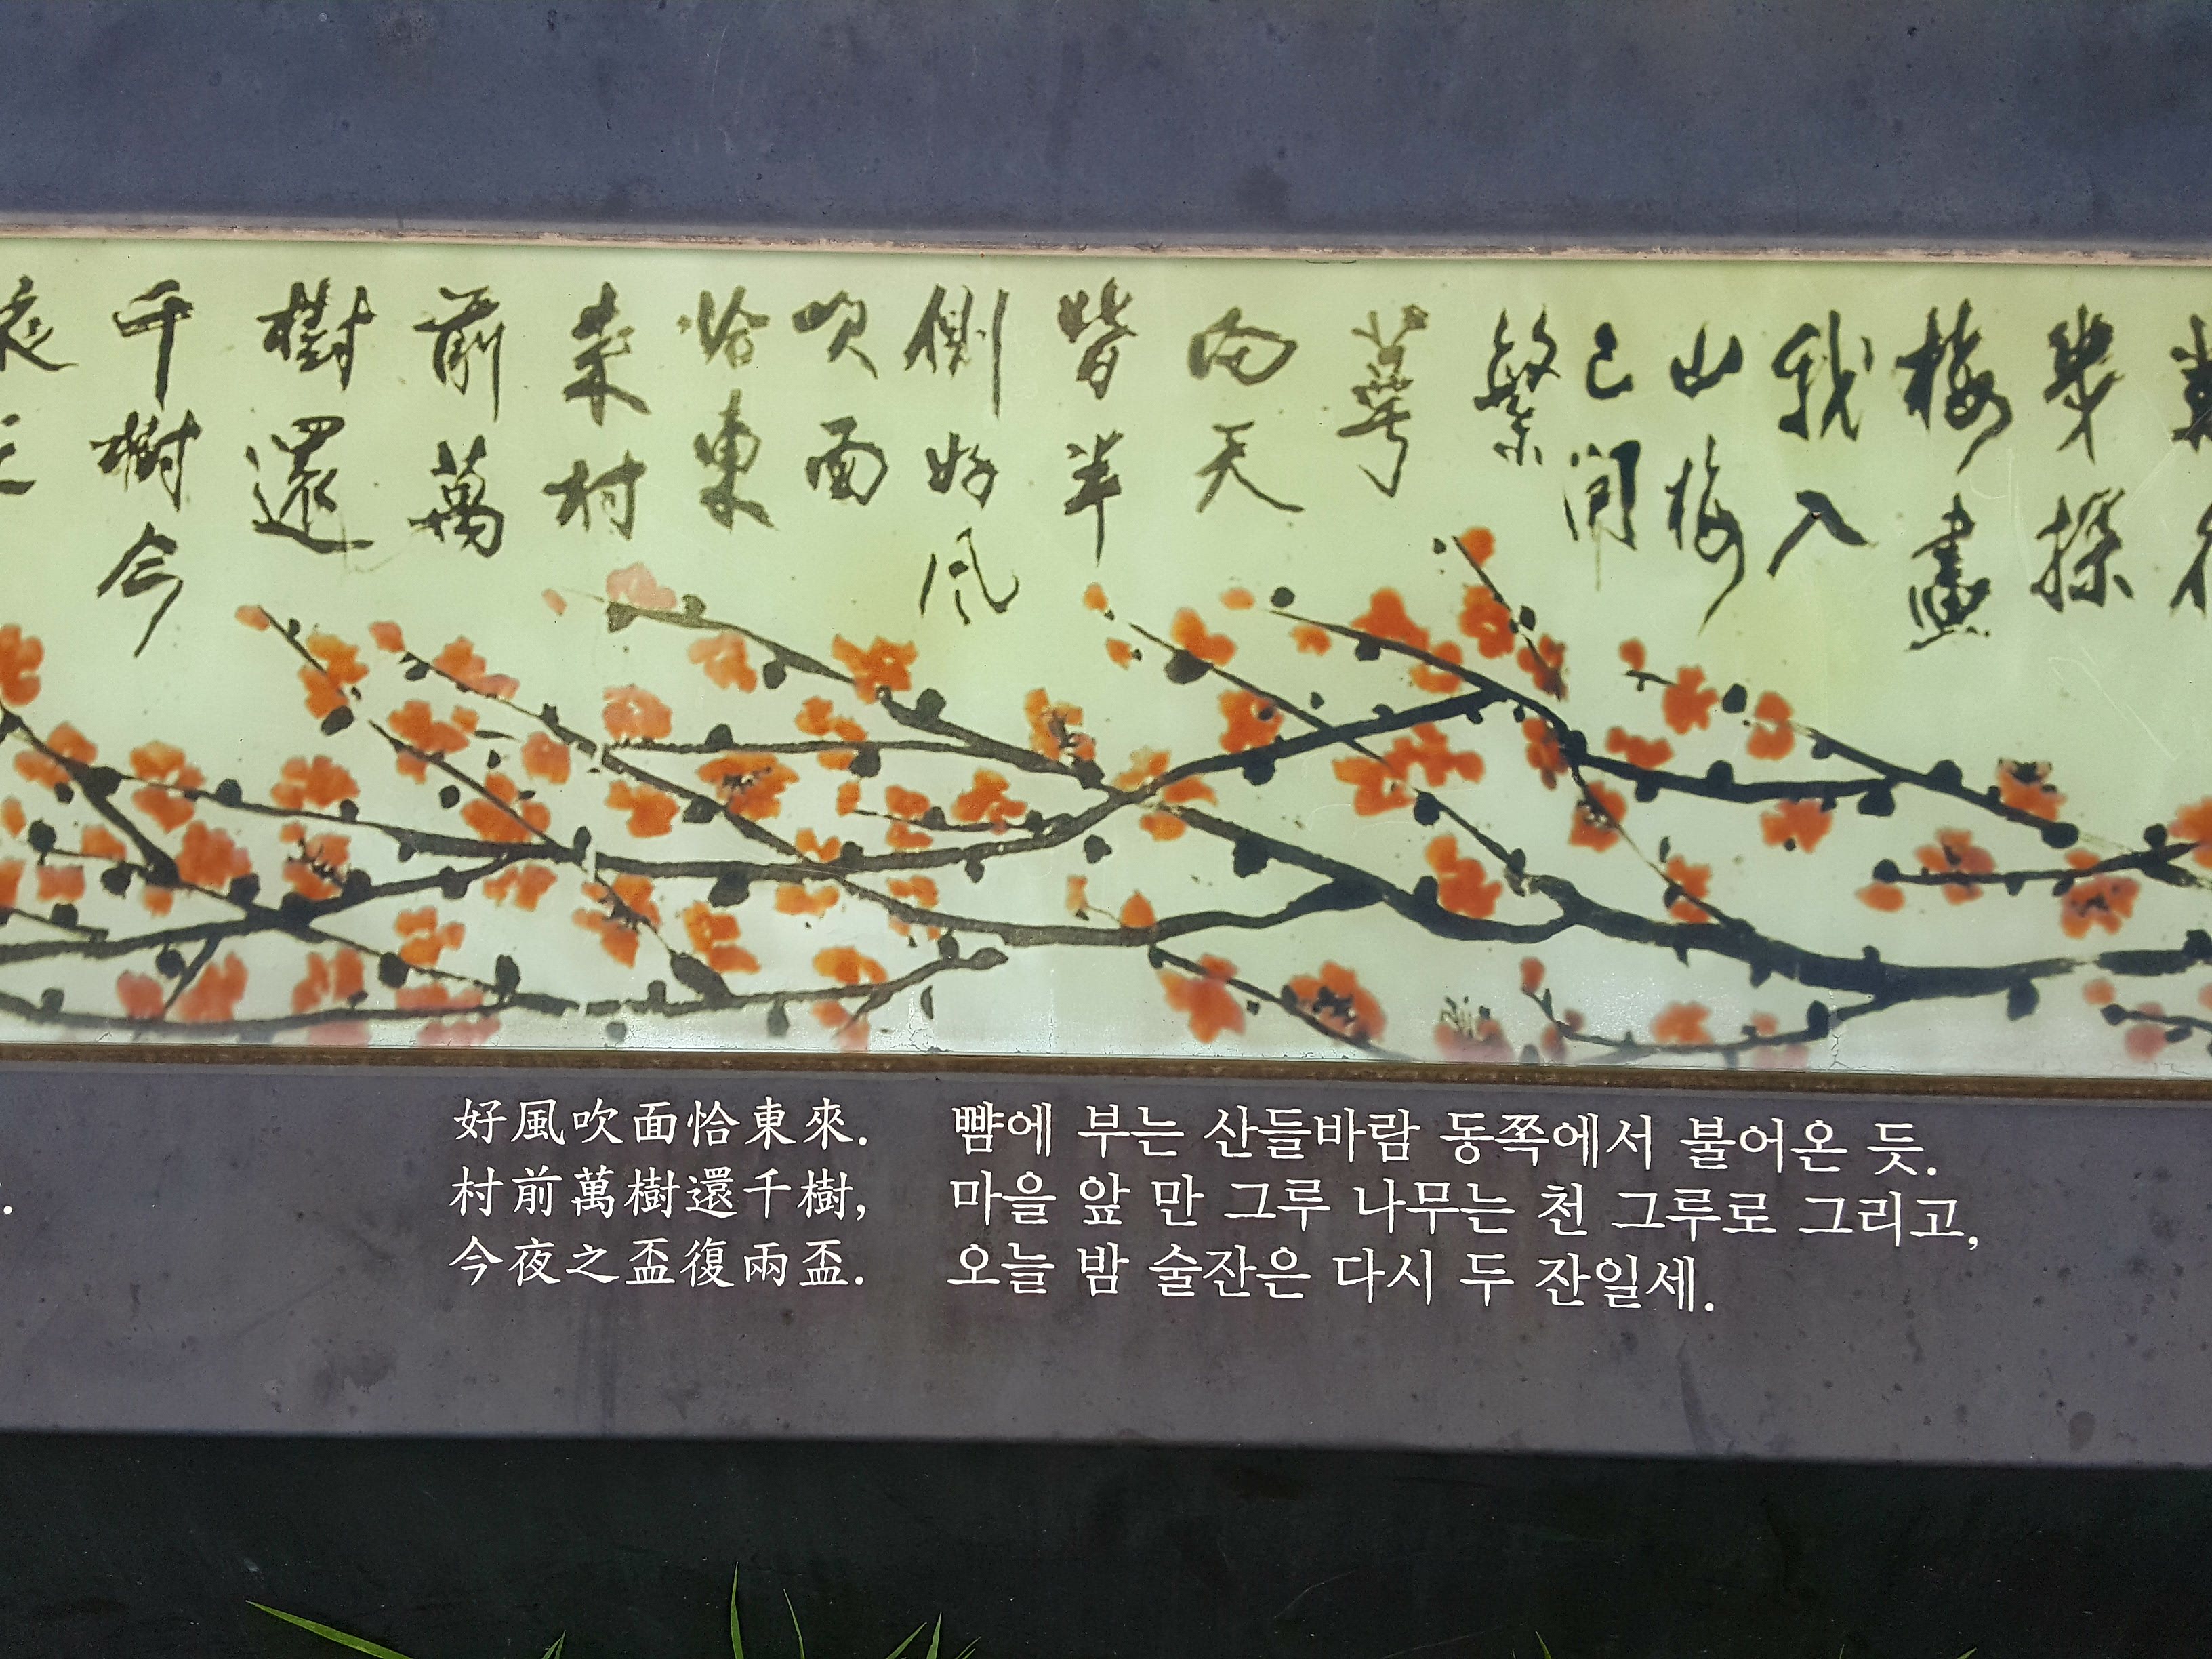 幾探
梅畫
我入
山梅
已開
繁
萼
向天
皆半
側好風
吹面
恰東
來村
前萬
樹還
千樹今
夜之
好風吹面恰東來.
村前萬樹還千樹,
今夜之盃復兩盃.
뺨에 부는 산들바람 동쪽에서 불어온 듯.
마을 앞 만 그루 나무는 천 그루로 그리고,
오늘 밤 술잔은 다시 두 잔일세.